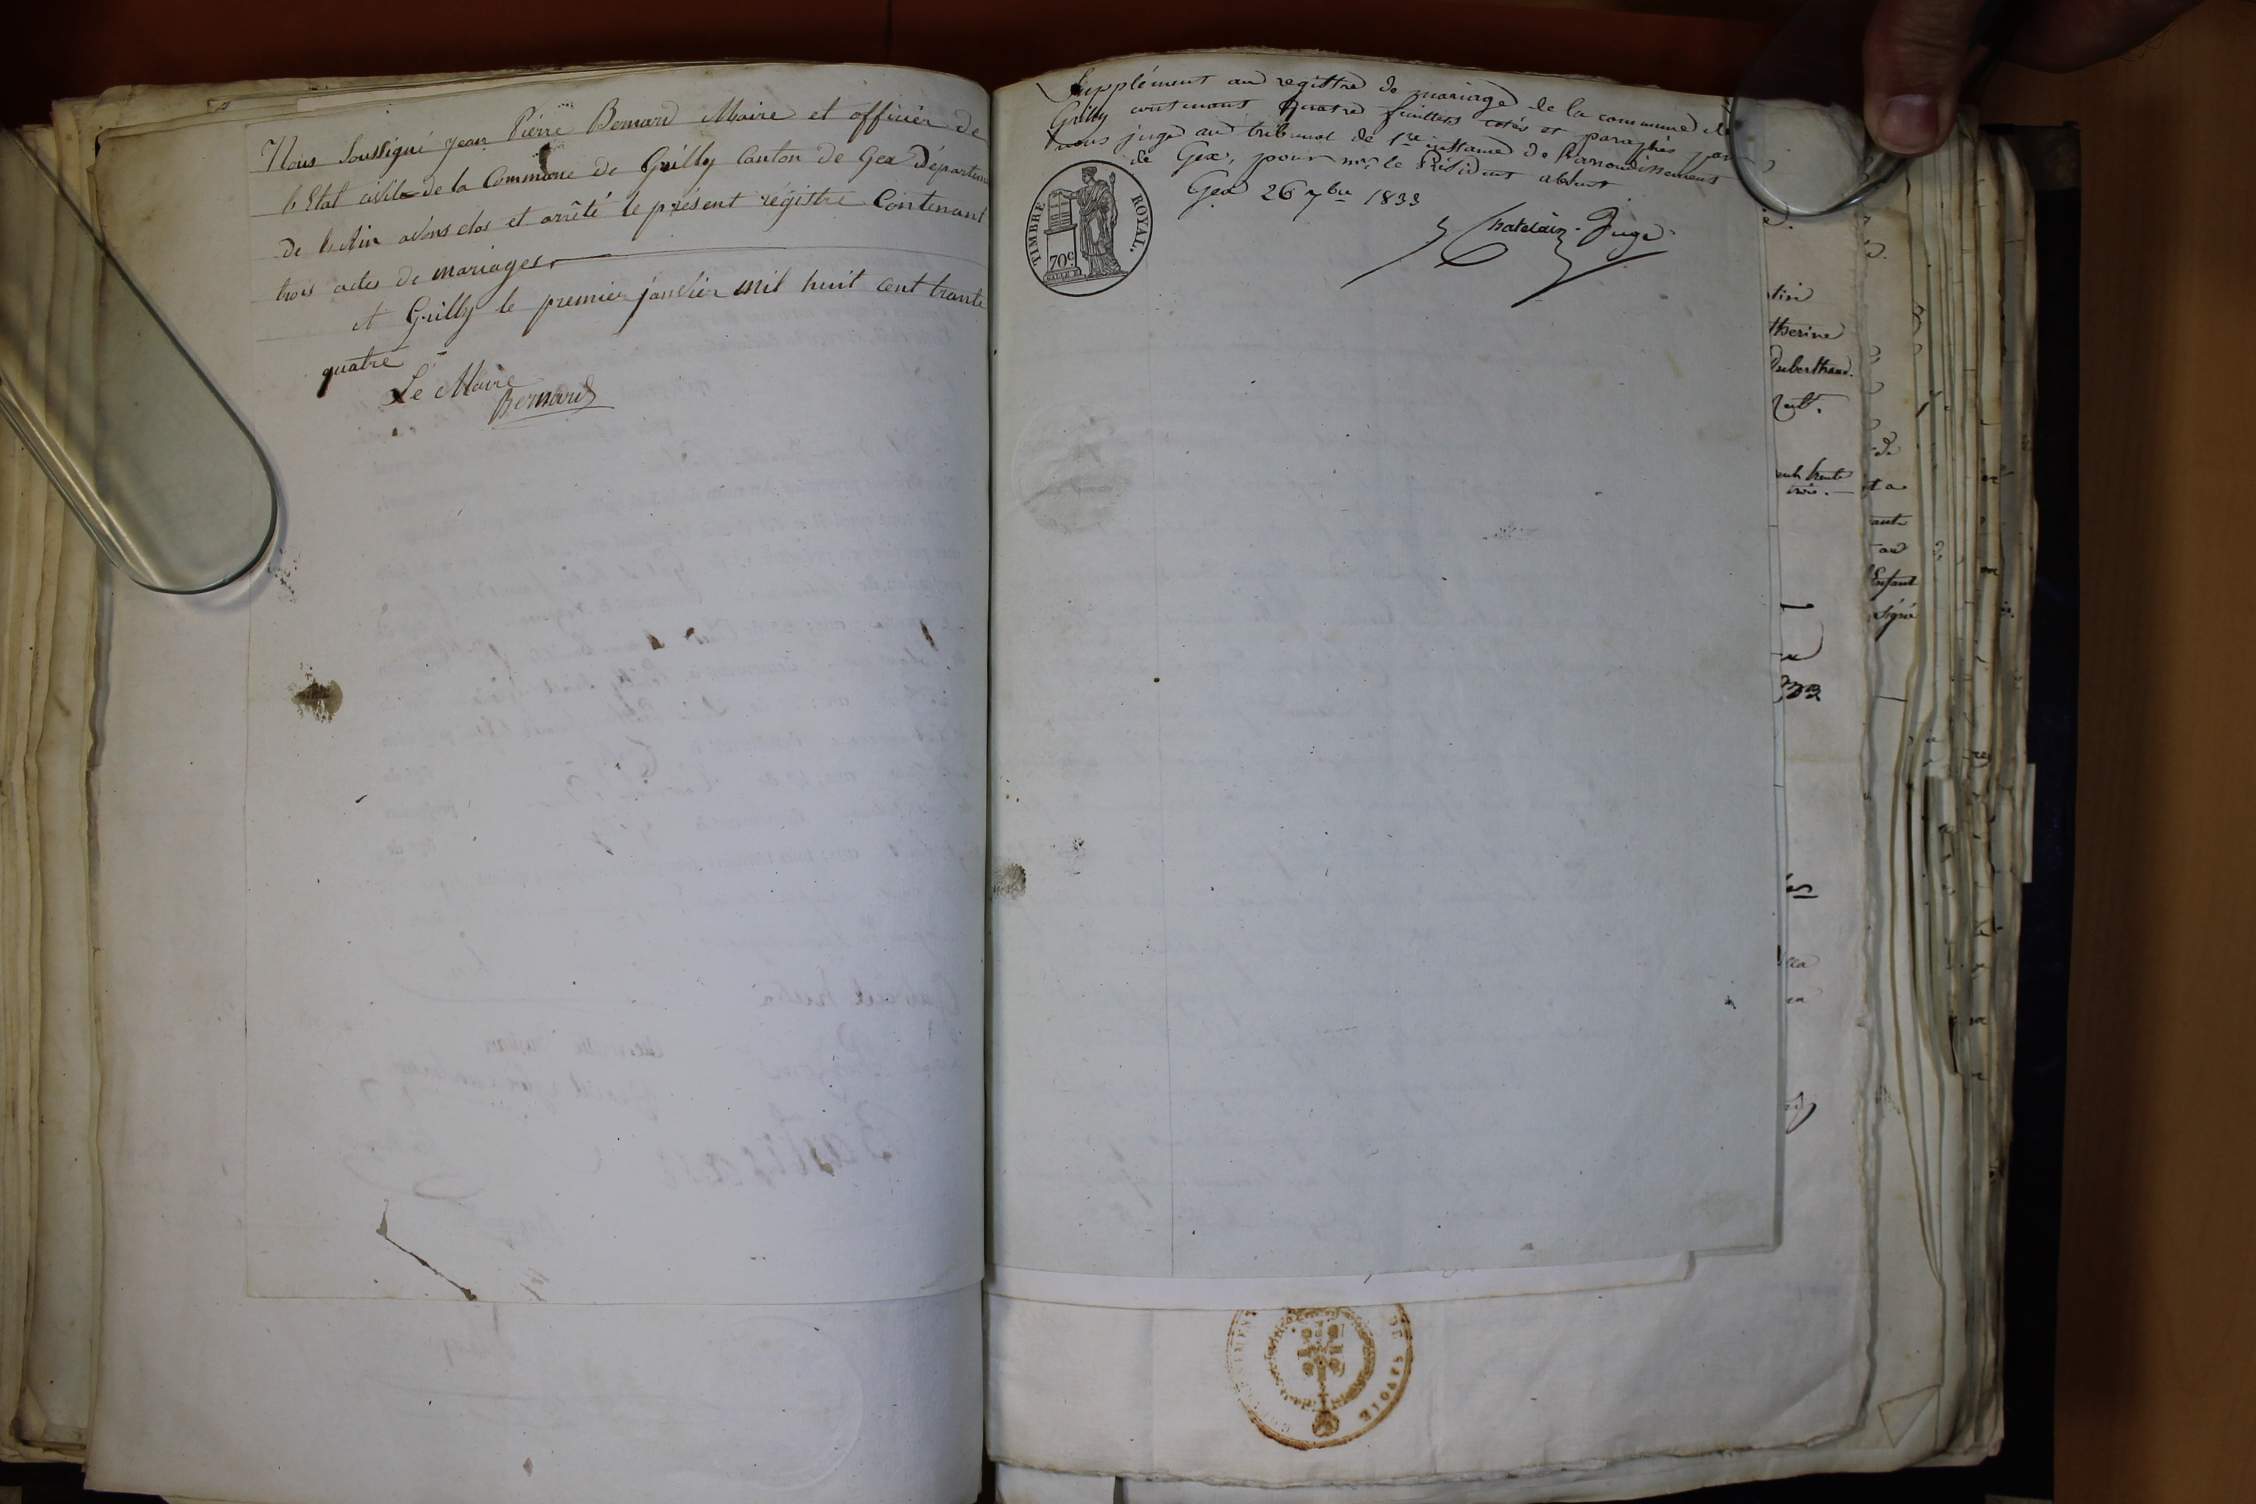 Nous Soussigné jean Pierre Bernard Maire et officier de
l'Etat civile de la Commune de Grilly Canton de Gex Départem
de l'Ain avons clos et arrêté le présent régistre Contenant
trois actes de mariages.
A Grilly le premier janvier mil huit cent trante
quatre
Le Maire
Bernard
Supplément au registre de mariage de la commune de
Grilly contenant quatre feuillets cotés et paraphés par
nous juge au tribunal de 1re instance de l'arrondissement
de Gex, pour mr le Président absent
Gex 26 7bre 1833
Chatelain Juge
TIMBRE ROYAL.
70c
therine
Duberthand.
cent trente
trois.
et a
ante
au
Enfant
signé
DE SAVOIE